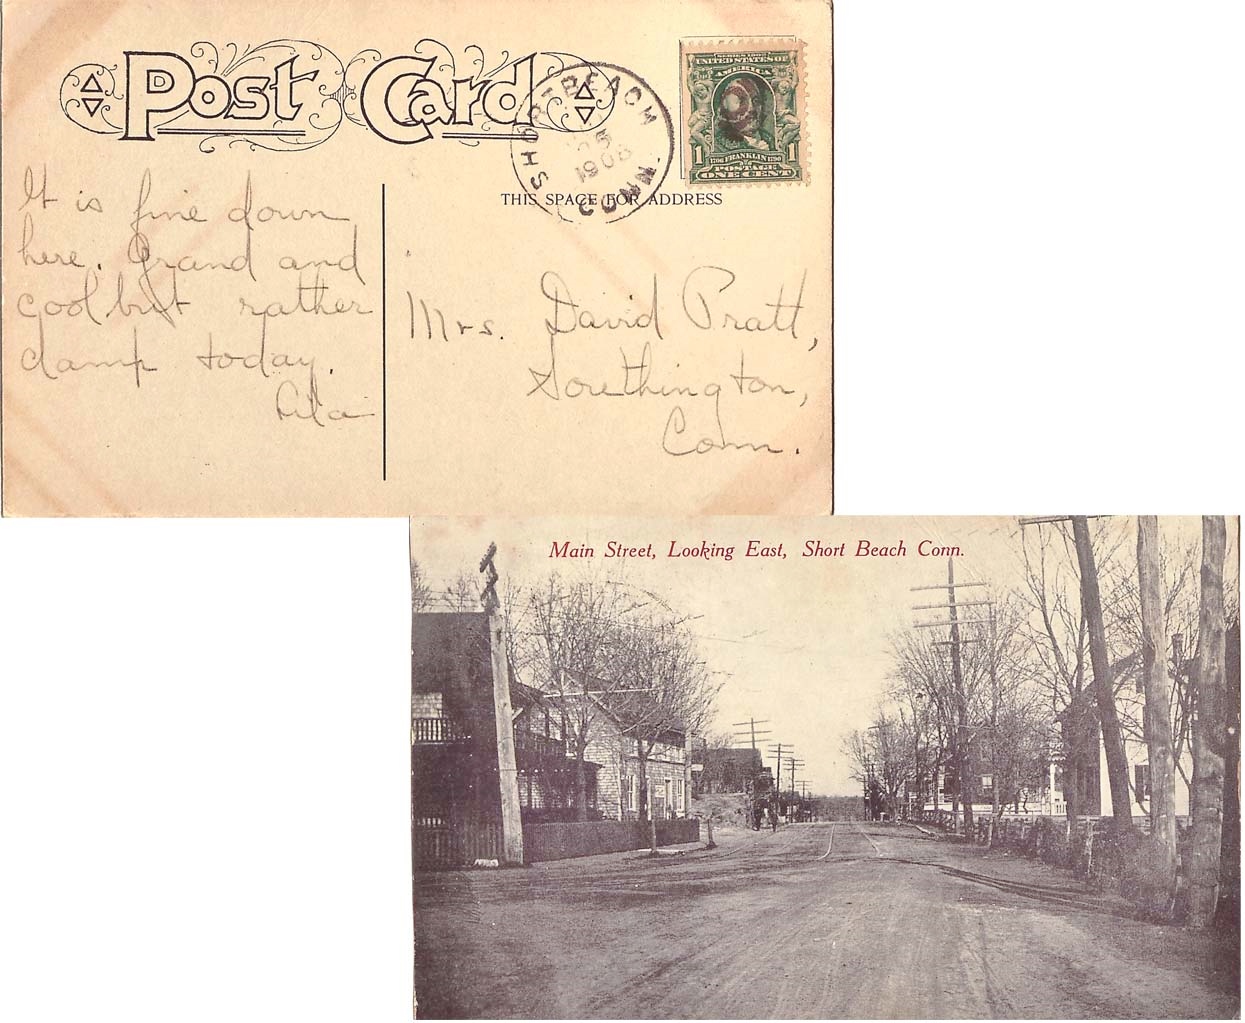 Post Card
SHORT BEACH
5
1908
CONN.
SERIES 1902
UNITED STATES OF
AMERICA
1 1706 FRANKLIN 1790 1
POSTAGE
ONE CENT
THIS SPACE FOR ADDRESS
It is fine down
here. Grand and
cool but rather
damp today.
Mrs. David Pratt,
Sorethington,
Conn.
Main Street, Looking East, Short Beach Conn.